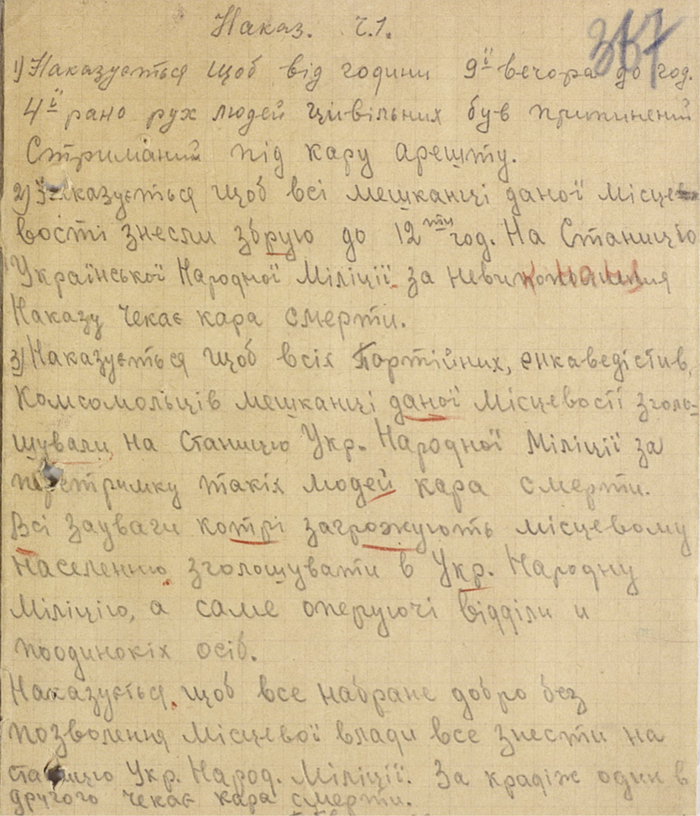 Наказ. Ч.1.
357
1) Наказується щоб від години 9ї вечора до год.
4ї рано рух людей цивільних був припинений
Стриманий під кару арешту.
2) Наказується щоб всі мешканці даної місце-
вості знесли зброю до 12 год. На Станицю
Української Народної Міліції за невиконання
Наказу чекає кара смерти.
3) Наказується щоб всіх Партійних, енкаведістив,
Комсомольців мешканці даної місцевості зголо-
шували на станицю Укр. Народної Міліції за
перетримку такіх людей кара смерти.
Всі зауваги котрі загрожують місцевому
населенню зголошувати в Укр. Народну
Міліцію, а саме оперуючі відділи и
поодинокіх осіб.
Наказується щоб все набране добро без
позволення Місцевої влади все знести на
станицю Укр. Народ. Міліції. За крадіж один в
другого чекає кара смерти.